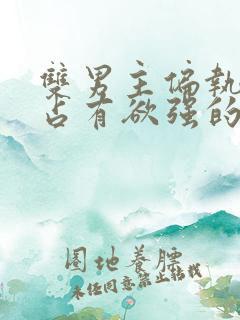 雙男主偏執
占有欲强的
圈地養膘
未經同意禁止轉載